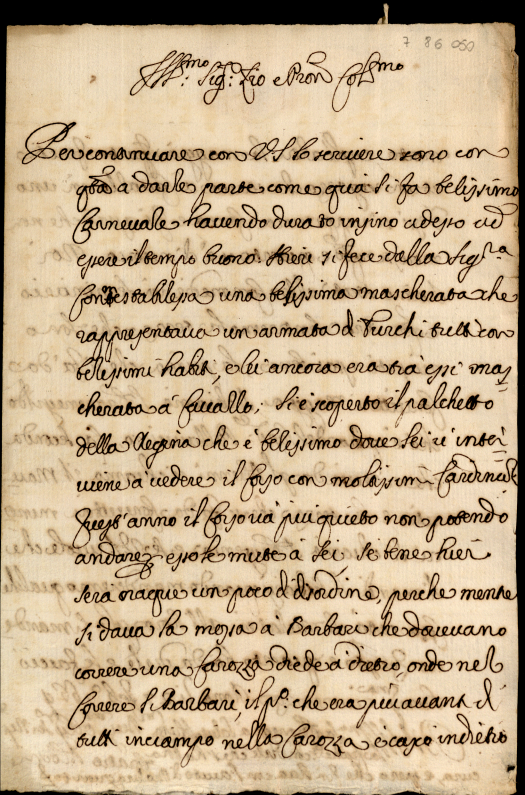 7 86 050
Ill.mo Sig.r Zio e Pron Col.mo
Per continuare con V.S. lo scrivere sono con
qta a darle parte come quà si fa belissimo
Carnevale havendo durato insino adesso ad
essere il tempo buono. Hieri si fece dalla Sig.ra
Contestabilessa una belissima mascherata che
rappresentava un armata di Turchi tutti con
belissimi habiti, e lei ancora era trà essi mas
cherata à Cavallo; Si è scoperto il palchetto
della Regina che è belissimo dove Lei vi inter
viene a vedere il Corso con moltissimi Cardinali
Quest'anno il Corso và più quieto non potendo
andare per esso le mute à sei, se bene hieri
sera nacque un poco di disordine, perche mentre
si dava la mossa à Barbari che dovevano
correre una Carozza diede à dietro, onde nel
Correre li Barbari, il p.o che era più avanti di
tutti inciampò nella Carozza e cascò indietro